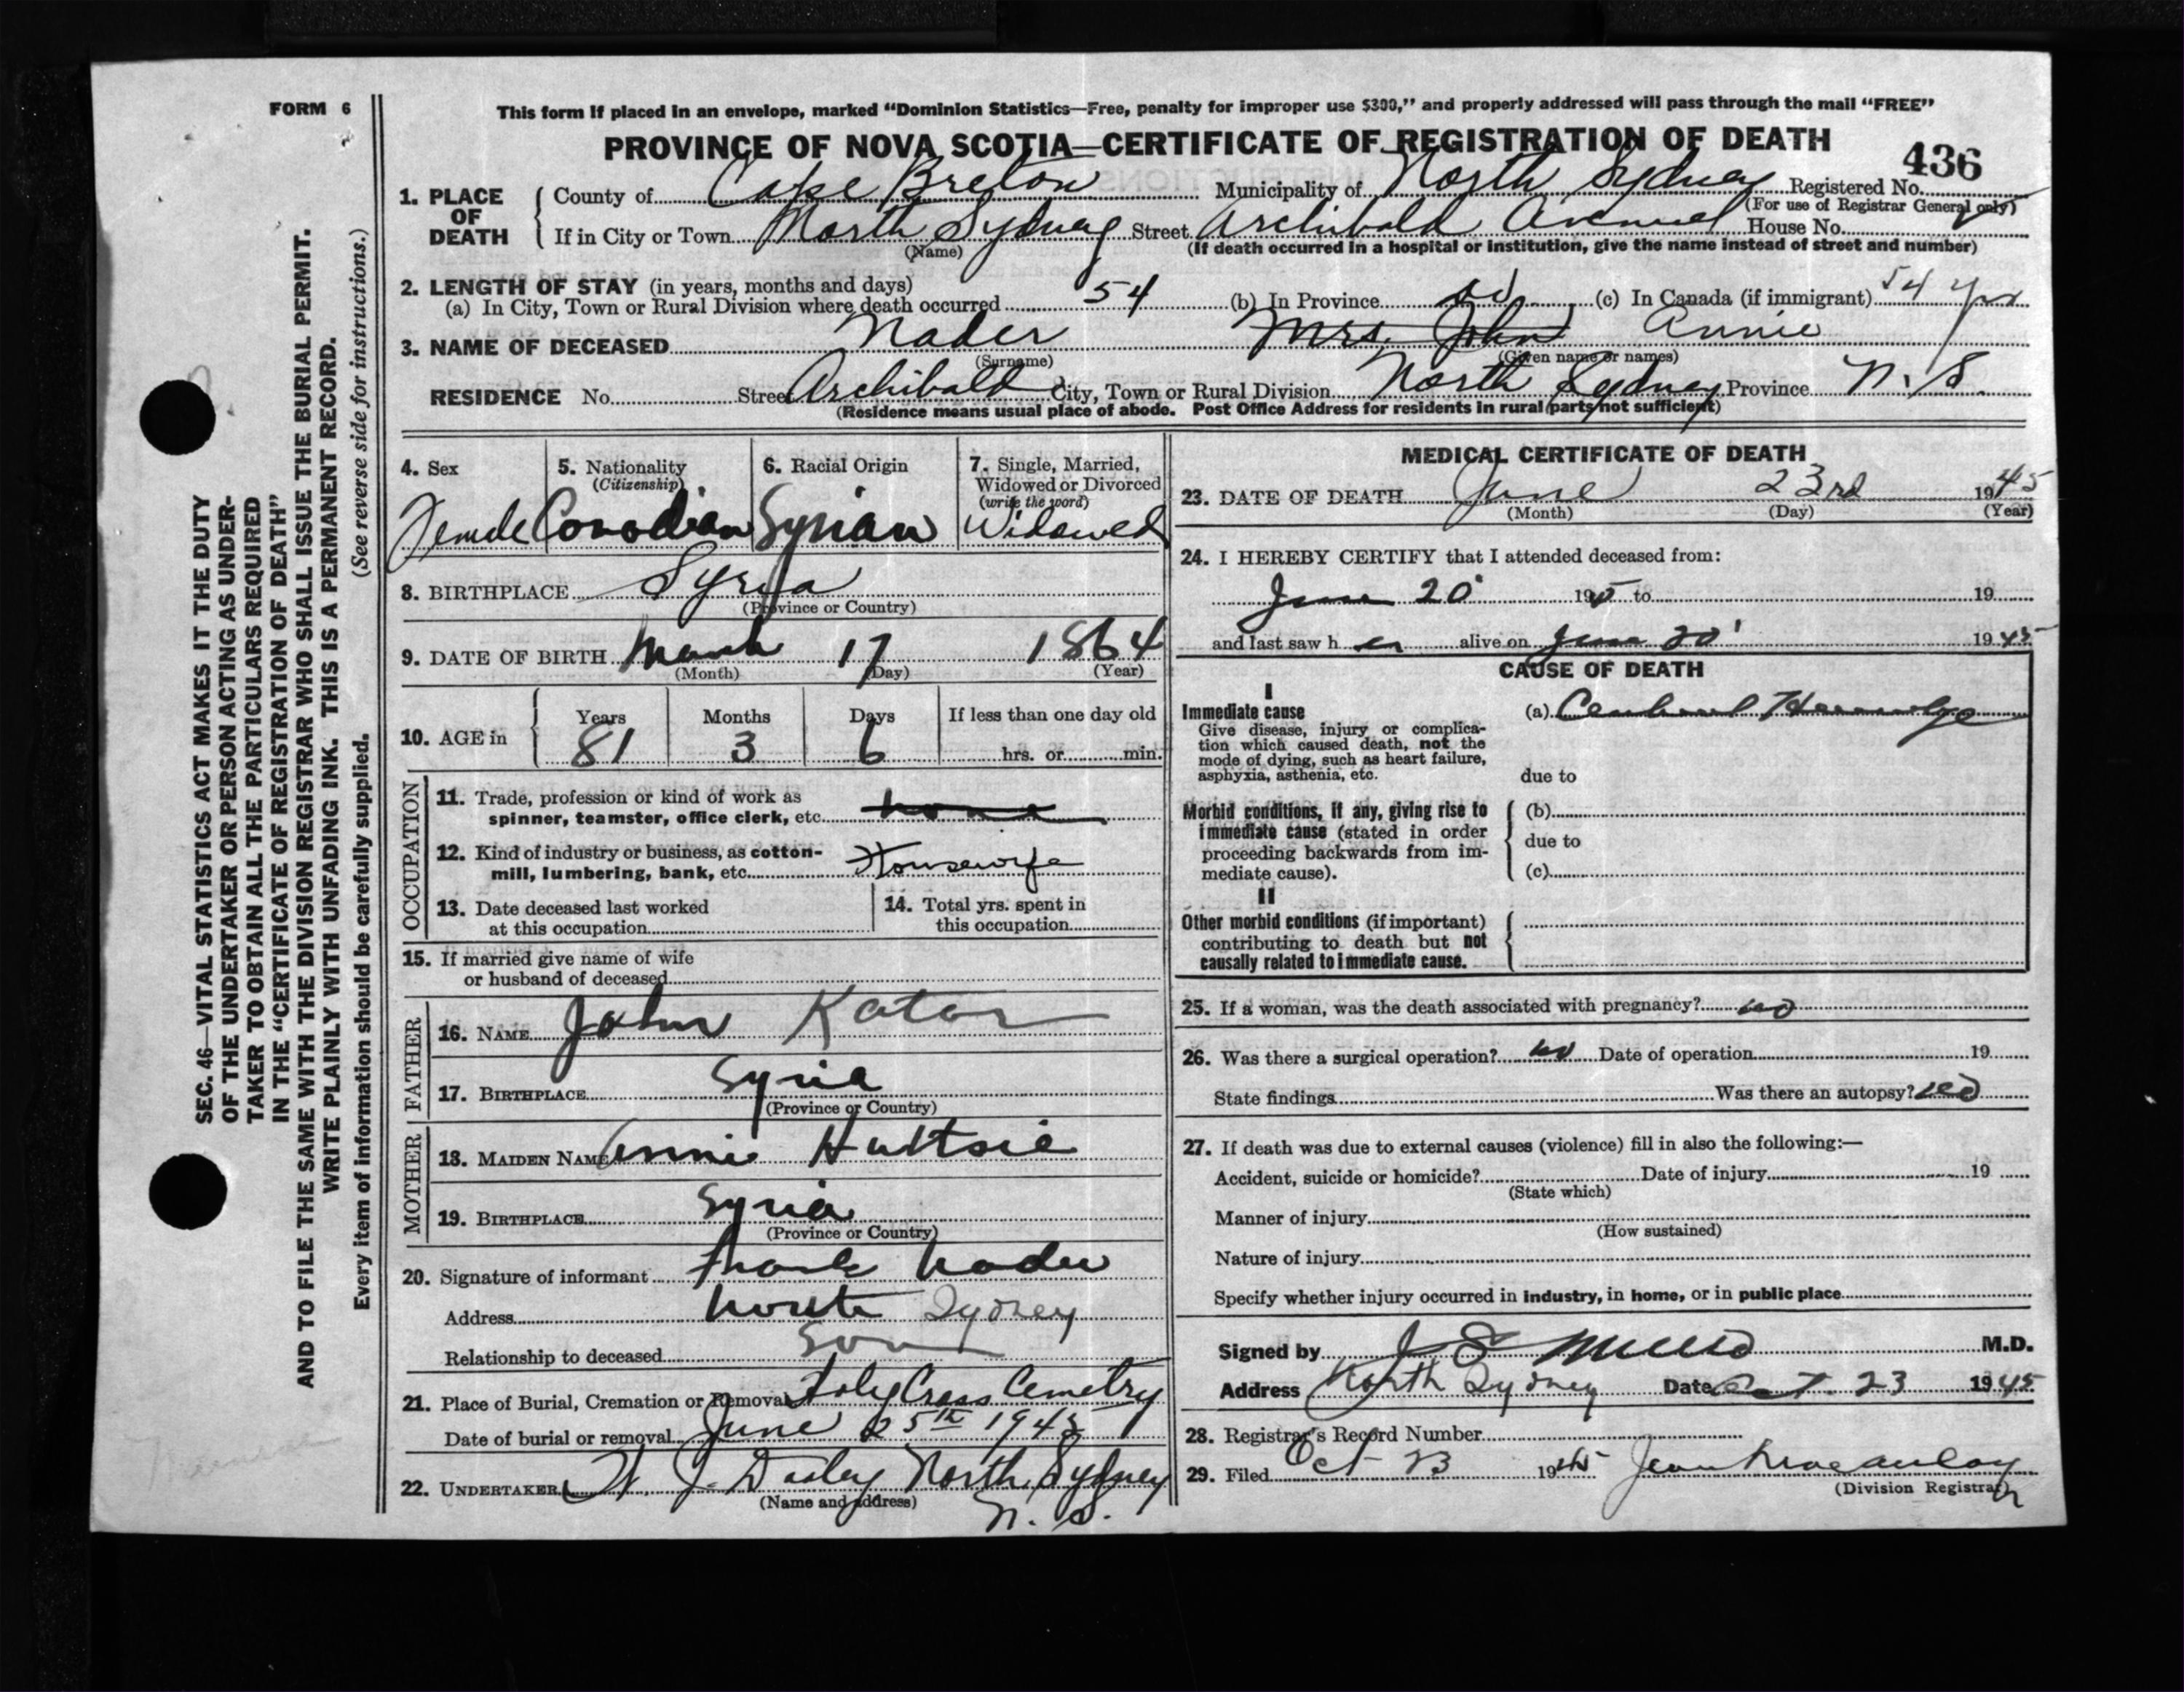 FORM 6
This form if placed in an envelope, marked “Dominion Statistics—Free, penalty for improper use $300,” and properly addressed will pass through the mail “FREE”
PROVINCE OF NOVA SCOTIA—CERTIFICATE OF REGISTRATION OF DEATH
436
1. PLACE OF DEATH
County of Cape Breton Municipality of North Sydney Registered No.
(For use of Registrar General only)
If in City or Town North Sydney Street Archibald Avenue House No.
(Name) (If death occurred in a hospital or institution, give the name instead of street and number)
2. LENGTH OF STAY (in years, months and days)
(a) In City, Town or Rural Division where death occurred 54 (b) In Province (c) In Canada (if immigrant) 54 yrs
3. NAME OF DECEASED Nader Mrs. John Annie
(Surname) (Given name or names)
RESIDENCE No. Street Archibald City, Town or Rural Division North Sydney Province N.S.
(Residence means usual place of abode. Post Office Address for residents in rural parts not sufficient)
4. Sex 5. Nationality 6. Racial Origin 7. Single, Married,
(Citizenship) Widowed or Divorced
(write the word)
Female Canadian Syrian Widowed
8. BIRTHPLACE Syria
(Province or Country)
9. DATE OF BIRTH March 17 1864
(Month) (Day) (Year)
10. AGE in Years Months Days If less than one day old
81 3 6 hrs. or min.
OCCUPATION
11. Trade, profession or kind of work as
spinner, teamster, office clerk, etc. none
12. Kind of industry or business, as cotton-
mill, lumbering, bank, etc. Housewife
13. Date deceased last worked
at this occupation
14. Total yrs. spent in
this occupation
15. If married give name of wife
or husband of deceased
FATHER
16. NAME John Kator
17. BIRTHPLACE Syria
(Province or Country)
MOTHER
18. MAIDEN NAME Annie Huttsie
19. BIRTHPLACE Syria
(Province or Country)
20. Signature of informant Frank Nader
Address North Sydney
Relationship to deceased Son
21. Place of Burial, Cremation or Removal Holy Cross Cemetry
Date of burial or removal June 25th 1945
22. UNDERTAKER J. Dooley North Sydney
(Name and address) N. S.
MEDICAL CERTIFICATE OF DEATH
23. DATE OF DEATH June 23rd 1945
(Month) (Day) (Year)
24. I HEREBY CERTIFY that I attended deceased from:
June 20 19 to 19
and last saw h er alive on June 20 1945
CAUSE OF DEATH
I
Immediate cause (a) Cerebral Hemorrhage
Give disease, injury or complica-
tion which caused death, not the
mode of dying, such as heart failure,
asphyxia, asthenia, etc. due to
Morbid conditions, if any, giving rise to (b)
immediate cause (stated in order due to
proceeding backwards from im-
mediate cause). (c)
II
Other morbid conditions (if important)
contributing to death but not
causally related to immediate cause.
25. If a woman, was the death associated with pregnancy? no
26. Was there a surgical operation? no Date of operation 19
State findings Was there an autopsy? no
27. If death was due to external causes (violence) fill in also the following:—
Accident, suicide or homicide? Date of injury 19
(State which)
Manner of injury
(How sustained)
Nature of injury
Specify whether injury occurred in industry, in home, or in public place
Signed by J S M.D.
Address North Sydney Date Oct. 23 1945
28. Registrar's Record Number
29. Filed Oct 23 1945 Jean Macaulay
(Division Registrar)
SEC. 46—VITAL STATISTICS ACT MAKES IT THE DUTY
OF THE UNDERTAKER OR PERSON ACTING AS UNDER-
TAKER TO OBTAIN ALL THE PARTICULARS REQUIRED
IN THE “CERTIFICATE OF REGISTRATION OF DEATH”
AND TO FILE THE SAME WITH THE DIVISION REGISTRAR WHO SHALL ISSUE THE BURIAL PERMIT.
WRITE PLAINLY WITH UNFADING INK. THIS IS A PERMANENT RECORD.
Every item of information should be carefully supplied. (See reverse side for instructions.)